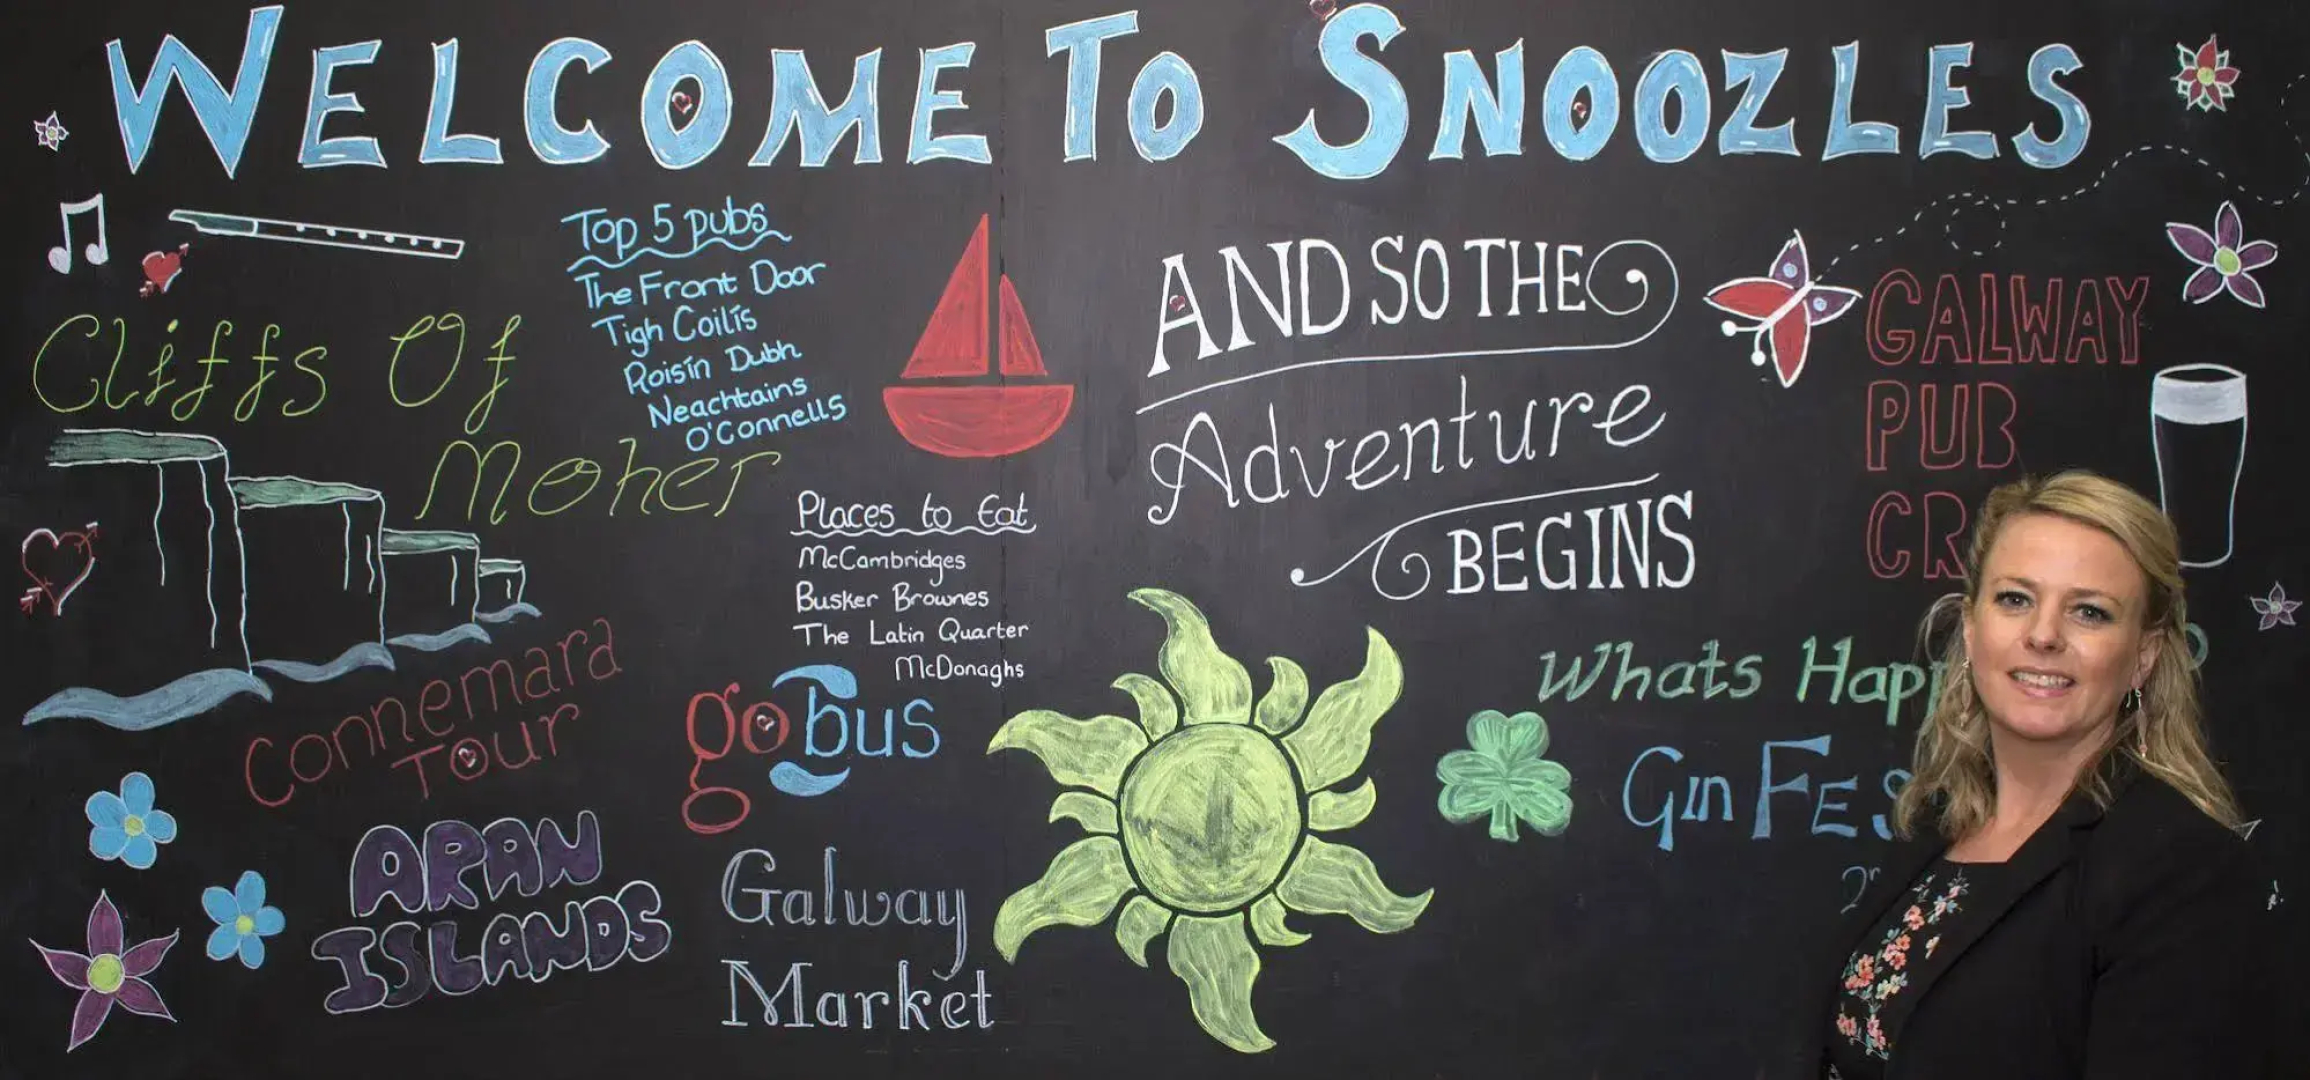 WELCOME TO SNOOZLES
Top 5 pubs
The Front Door
Tigh Coilís
Roisín Dubh
Neachtains
O'Connells
AND SO THE
Adventure
BEGINS
GALWAY
PUB
CR
Cliffs Of
Moher
Places to Eat
McCambridges
Busker Brownes
The Latin Quarter
McDonaghs
Connemara
Tour
gobus
Whats Happ
Gin Fes
ARAN
ISLANDS
Galway
Market